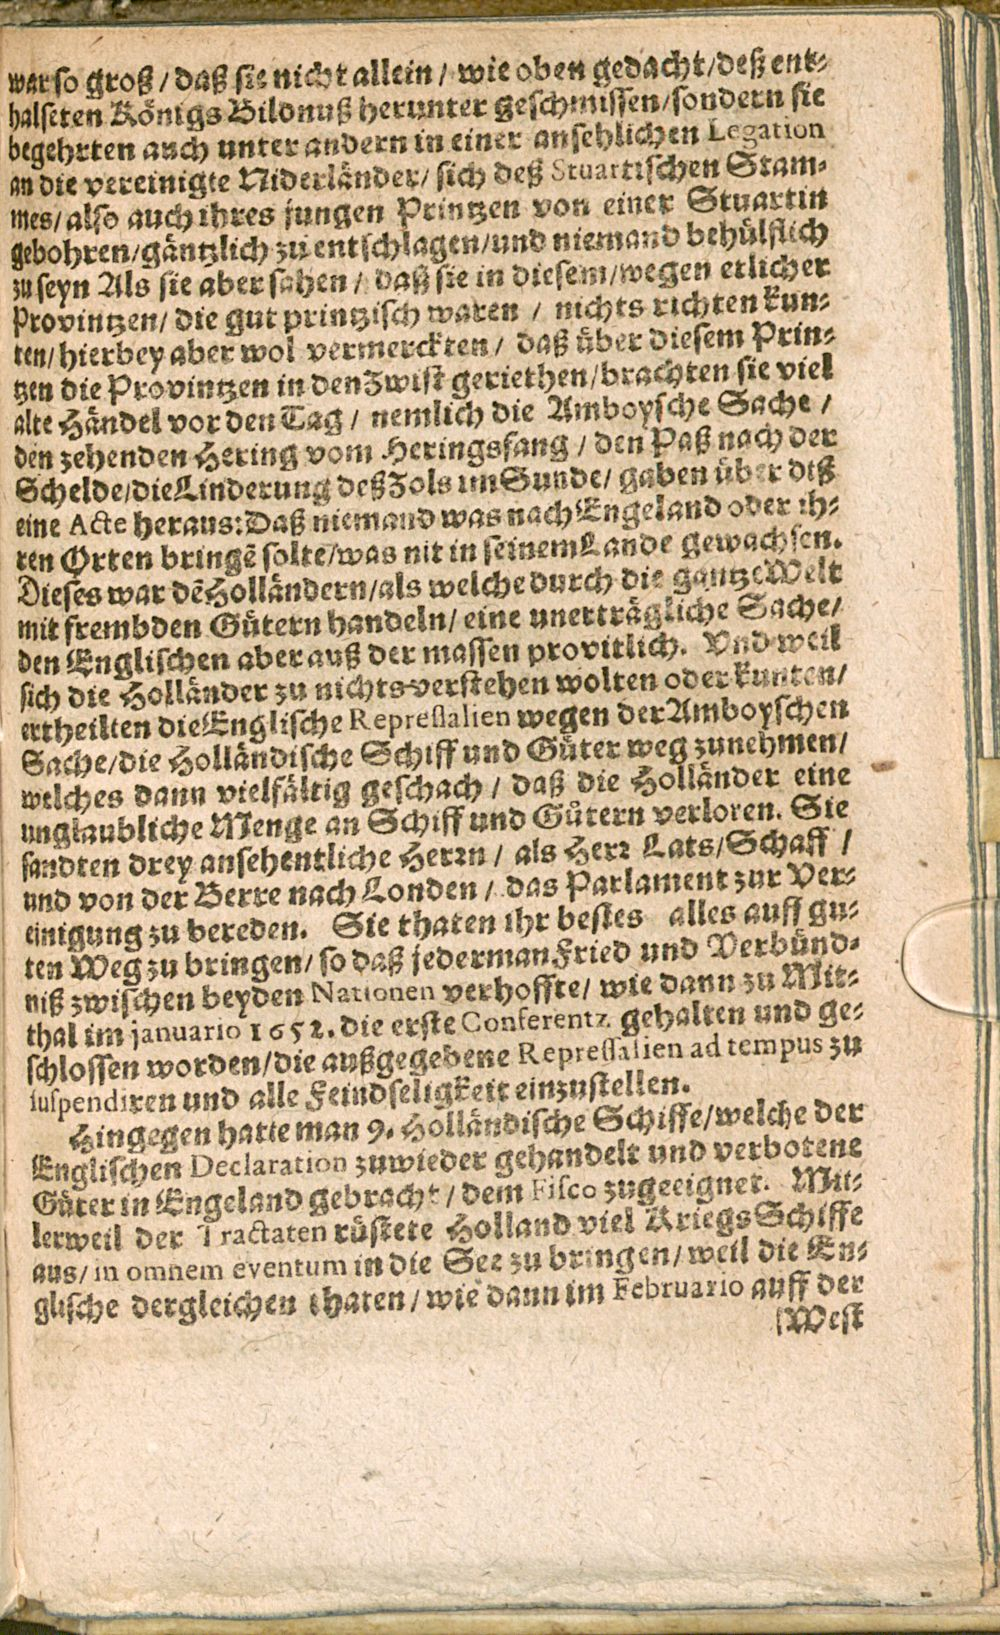 war so groß / daß sie nicht allein / wie oben gedacht / deß ent-
halseten Königs Bildnuß herunter geschmissen / sondern sie
begehrten auch unter andern in einer ansehlichen Legation
an die vereinigte Niderländer / sich deß Stuartischen Stam-
mes / also auch ihres jungen Printzen von einer Stuartin
gebohren / gäntzlich zu entschlagen / und niemand behülflich
zu seyn Als sie aber sahen / daß sie in diesem / wegen etlicher
Provintzen / die gut printzisch waren / nichts richten kun-
ten / hierbey aber wol vermerckten / daß über diesem Prin-
tzen die Provintzen in den Zwist geriethen / brachten sie viel
alte Händel vor den Tag / nemlich die Amboysche Sache /
den zehenden Hering vom Heringsfang / den Paß nach der
Schelde / die Linderung deß Zols im Sunde / gaben über diß
eine Acte heraus: Daß niemand was nach Engeland oder ih-
ren Orten bringē solte / was nit in seinem Lande gewachsen.
Dieses war dē Holländern / als welche durch die gantze Welt
mit frembden Gütern handeln / eine unerträgliche Sache /
den Englischen aber auß der massen provitlich. Und weil
sich die Holländer zu nichts verstehen wolten oder kunten /
ertheilten die Englische Repressalien wegen der Amboyschen
Sache / die Holländische Schiff und Güter weg zunehmen /
welches dann vielfältig geschach / daß die Holländer eine
unglaubliche Menge an Schiff und Gütern verloren. Sie
sandten drey ansehentliche Herrn / als Herr Cats / Schaff /
und von der Berre nach Londen / das Parlament zur Ver-
einigung zu bereden. Sie thaten ihr bestes alles auff gu-
ten Weg zu bringen / so daß jederman Fried und Verbünd-
niß zwischen beyden Nationen verhoffte / wie dann zu Mit-
thal im januario 1652. die erste Conferentz gehalten und ge-
schlossen worden / die außgegebene Repressalien ad tempus zu
suspendiren und alle Feindseligkeit einzustellen.
Hingegen hatte man 9. Holländische Schiffe / welche der
Englischen Declaration zuwieder gehandelt und verbotene
Güter in Engeland gebracht / dem Fisco zugeeignet. Mit-
lerweil der Tractaten rüstete Holland viel Kriegs Schiffe
aus / in omnem eventum in die See zu bringen / weil die En-
glische dergleichen thaten / wie dann im Februario auff der
West